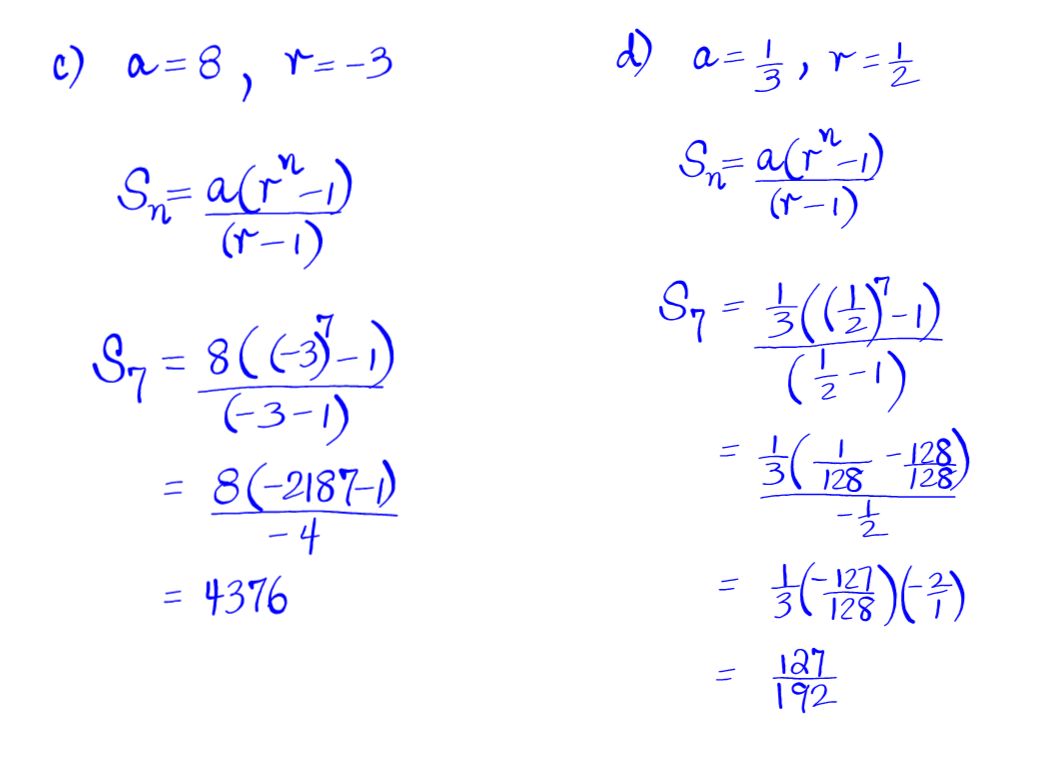 c) a = 8 , r = -3
Sₙ = a(rⁿ - 1) / (r - 1)
S₇ = 8((-3)⁷ - 1) / (-3 - 1)
= 8(-2187 - 1) / -4
= 4376
d) a = 1/3 , r = 1/2
Sₙ = a(rⁿ - 1) / (r - 1)
S₇ = 1/3((1/2)⁷ - 1) / (1/2 - 1)
= 1/3(1/128 - 128/128) / -1/2
= 1/3(-127/128)(-2/1)
= 127/192